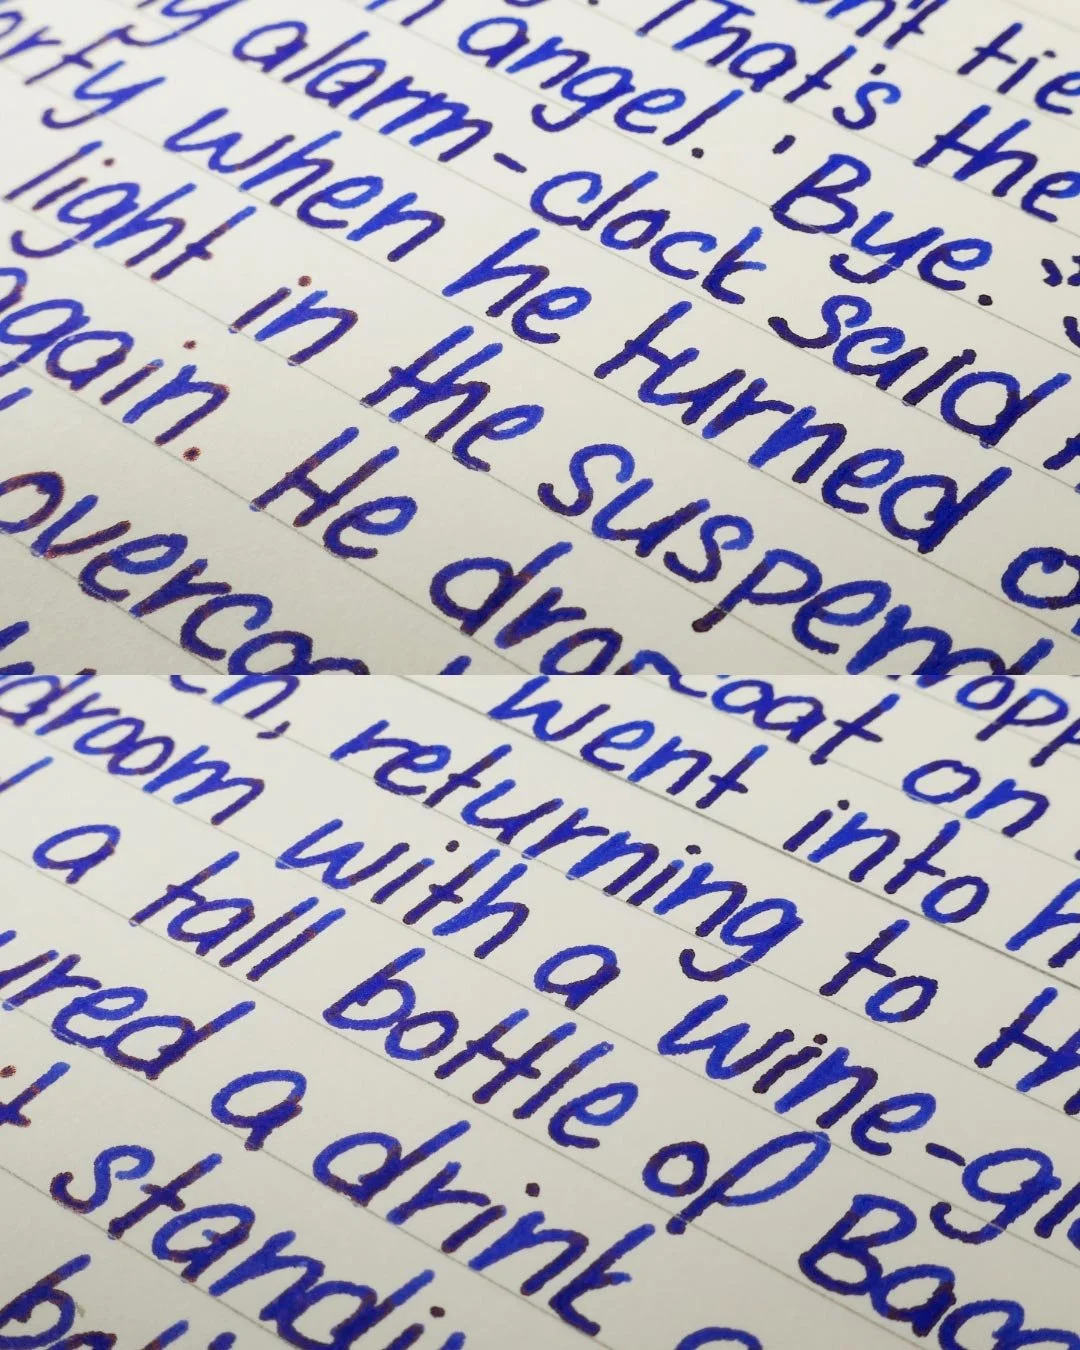 tie
That's the
angel. 'Bye."
alarm-clock said
when he turned
light in the suspend
again. He dro
overcoa
ropp
coat on
went into h
returning to th
droom with a wine-gl
a tall bottle of Bac
ured a drink
t standi